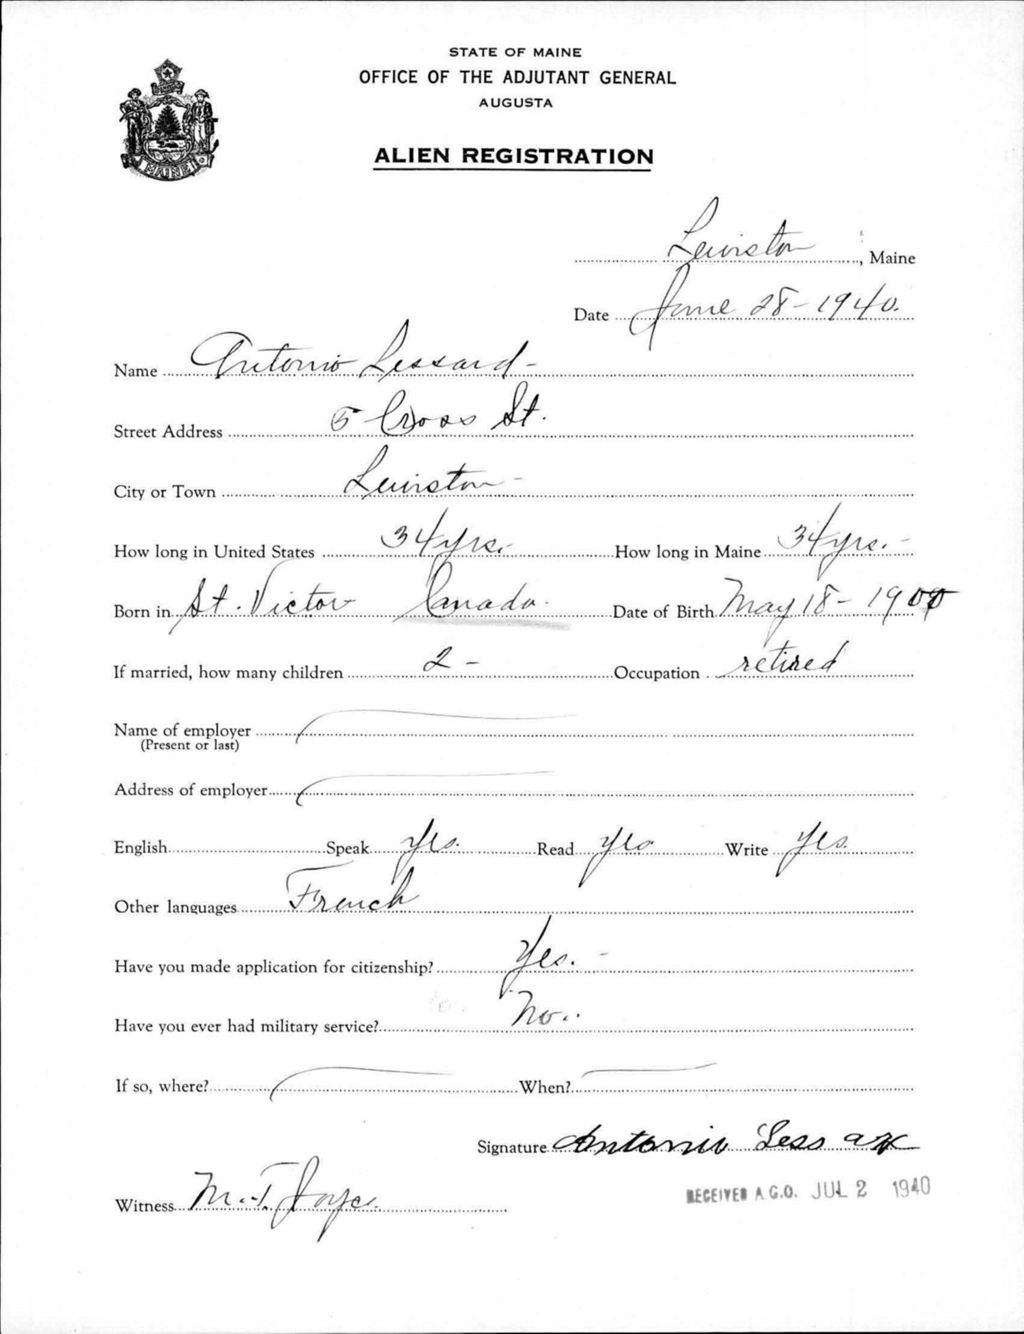 STATE OF MAINE
OFFICE OF THE ADJUTANT GENERAL
AUGUSTA
ALIEN REGISTRATION
MAINE
Lewiston, Maine
Date June 28-1940.
Name Antonio Lessard-
Street Address 5 Cross St.
City or Town Lewiston-
How long in United States 34 yrs. How long in Maine 34 yrs.-
Born in St. Victor Canada. Date of Birth May 18-1900
If married, how many children 2- Occupation retired
Name of employer
(Present or last)
Address of employer
English Speak Yes. Read Yes Write Yes.
Other languages French
Have you made application for citizenship? Yes.-
Have you ever had military service? No..
If so, where? When?
Signature Antonio Lessard
Witness M.T. Joyce
RECEIVED A.G.O. JUL 2 1940